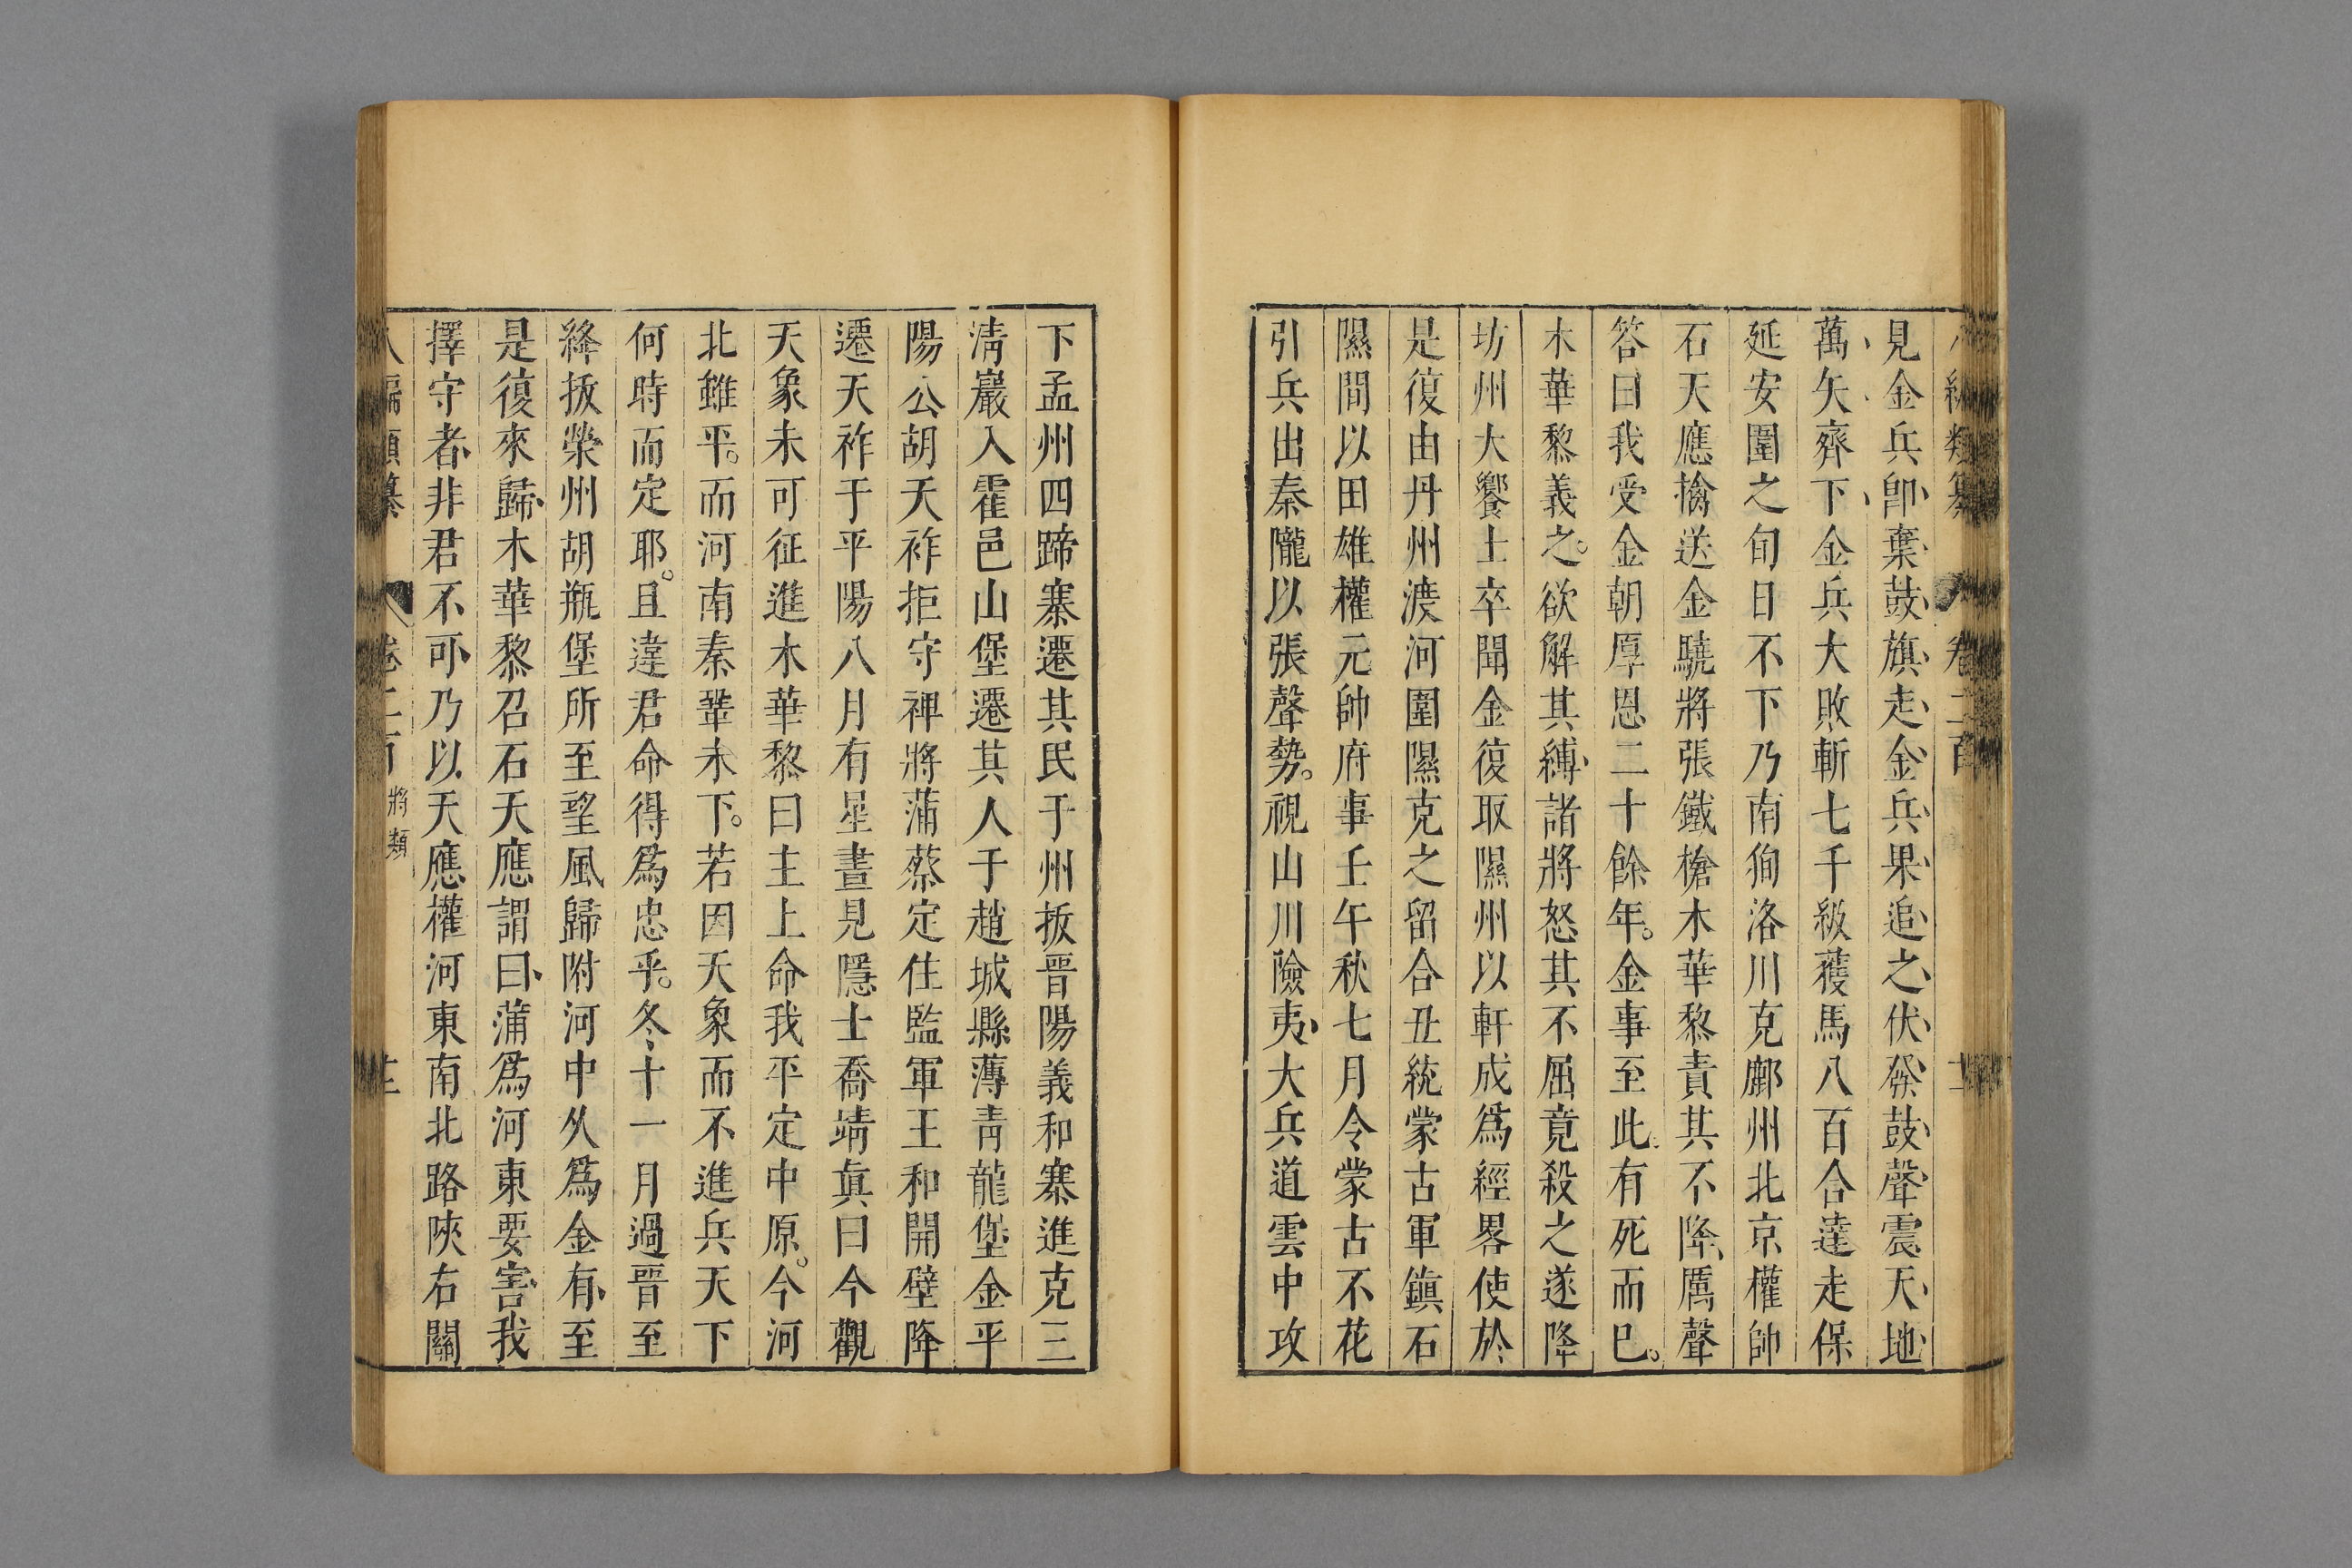 八編類纂 卷二百 十二
見金兵卽棄鼓旗走金兵果追之伏發鼓聲震天地
萬矢齊下金兵大敗斬七千級獲馬八百合達走保
延安圍之旬日不下乃南徇洛川克鄜州北京權帥
石天應擒送金驍將張鐵槍木華黎責其不降厲聲
答曰我受金朝厚恩二十餘年。金事至此有死而已。
木華黎義之。欲解其縛諸將怒其不屈竟殺之遂降
坊州大饗士卒聞金復取隰州以軒成爲經畧使於
是復由丹州渡河圍隰克之留合丑統蒙古軍鎮石
隰間以田雄權元帥府事壬午秋七月令蒙古不花
引兵出秦隴以張聲勢。視山川險夷大兵道雲中攻
下孟州四蹄寨遷其民于州拔晋陽義和寨進克三
清巖入霍邑山堡遷其人于趙城縣薄青龍堡金平
陽公胡天祚拒守裨將蒲蔡定住監軍王和開壁降
遷天祚于平陽八月有星晝見隱士喬靖眞曰今觀
天象未可征進木華黎曰主上命我平定中原。今河
北雖平。而河南秦鞏未下。若因天象而不進兵天下
何時而定耶。且違君命得爲忠乎。冬十一月過晋至
絳拔榮州胡瓶堡所至望風歸附河中久爲金有至
是復來歸木華黎召石天應謂曰蒲爲河東要害我
擇守者非君不可乃以天應權河東南北路陝右關
八編類纂 卷二百 將類